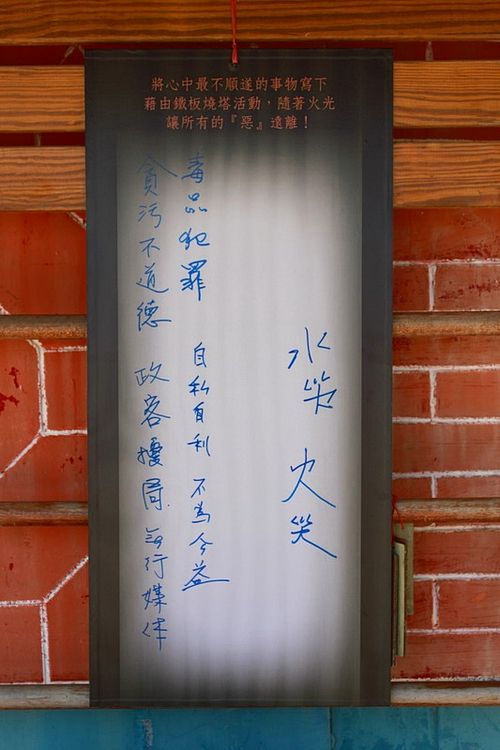 將心中最不順遂的事物寫下
藉由鐵板燒塔活動，隨著火光
讓所有的『惡』遠離！
水災 火災
毒品犯罪 自私自利 不為公益
貪污不道德 政客擾局 無行媒体